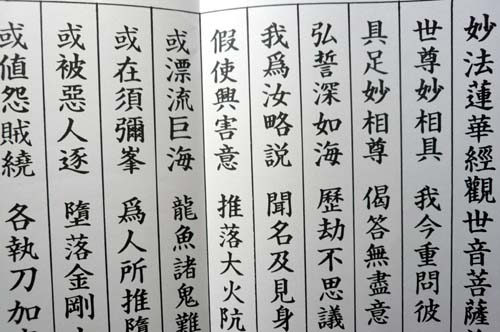 妙法蓮華經觀世音菩薩
世尊妙相具 我今重問彼
具足妙相尊 偈答無盡意
弘誓深如海 歷劫不思議
我爲汝略説 聞名及見身
假使興害意 推落大火阬
或漂流巨海 龍魚諸鬼難
或在須彌峯 爲人所推墮
或被惡人逐 墮落金剛
或值怨賊繞 各執刀加